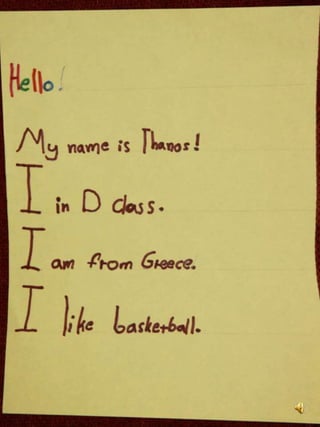 Hello!
My name is Thanos!
I in D class.
I am from Greece.
I like basketball.